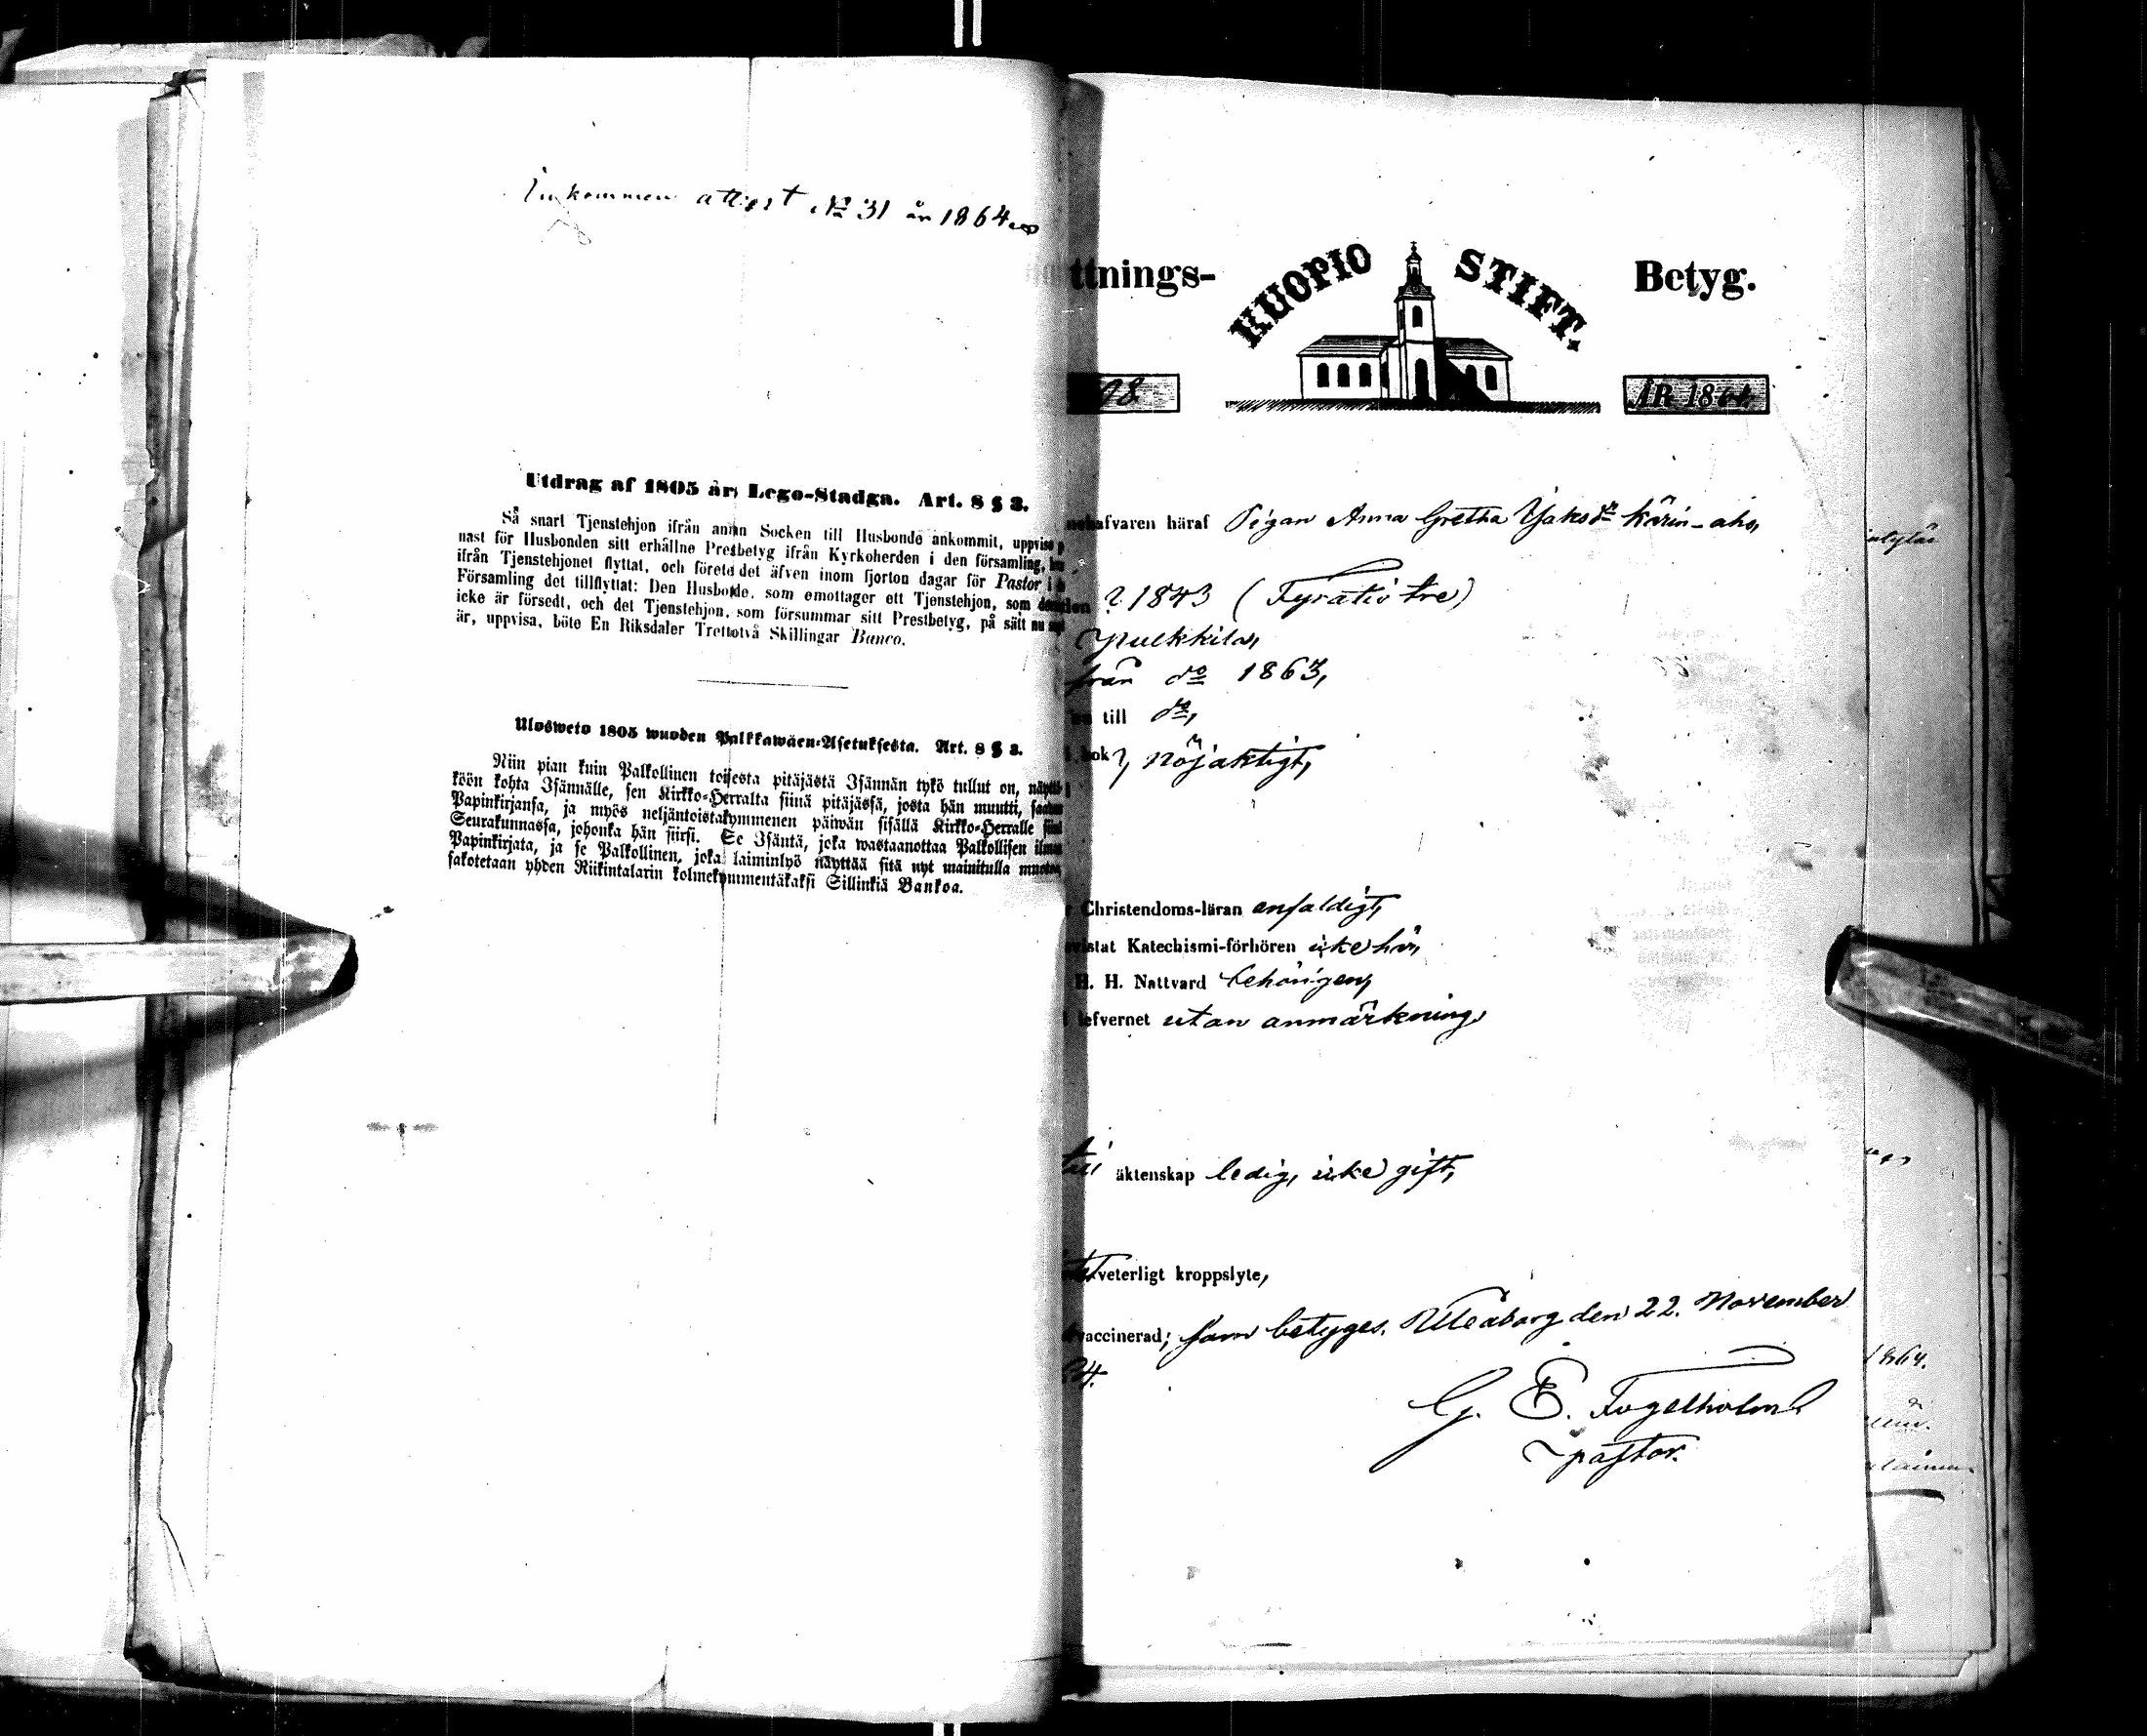 Inkommen attest No 31 år 1864
Utdrag af 1805 års Lego-Stadga. Art. 8 § 3.
Så snart Tjenstehjon ifrån annan Socken till Husbonde ankommit, uppvise
nast för Husbonden sitt erhållne Prestbetyg ifrån Kyrkoherden i den församling,
ifrån Tjenstehjonet flyttat, och förete det äfven inom fjorton dagar för Pastor i
Församling det tillflyttat: Den Husbonde, som emottager ett Tjenstehjon, som
icke är försedt, och det Tjenstehjon, som försummar sitt Prestbetyg, på sätt nu
är, uppvisa, böte En Riksdaler Trettotvå Skillingar Banco.
Ulosweto 1805 wuoden Palkkawäen-Asetuksesta. Art. 8 § 3.
Niin pian kuin Palkollinen toisesta pitäjästä Isännän tykö tullut on, näyttä
köön kohta Isännälle, sen Kirkko-Herralta siinä pitäjässä, josta hän muutti, saatun
Papinkirjansa, ja myös neljäntoistakymmenen päiwän sisällä Kirkko-Herralle siinä
Seurakunnassa, johonka hän siirsi. Se Isäntä, joka wastaanottaa Palkollisen ilman
Papinkirjata, ja se Palkollinen, joka laiminlyö näyttää sitä nyt mainitulla muotoa,
sakotetaan yhden Riikintalarin kolmekymmentäkaksi Sillinkiä Bankoa.
ttnings- KUOPIO STIFT. Betyg.
98 ÅR 1864
nehafvaren häraf Pigan Anna Gretha Jaksdr Karin-aho,
1843 (Fyratio tre)
Pulkkila,
från do 1863,
nu till do,
bok nöjaktigt,
Christendoms-läran enfaldigt,
vistat Katechismi-förhören icke här,
H. H. Nattvard behörigen,
lefvernet utan anmärkning,
till äktenskap ledig, icke gift,
veterligt kroppslyte,
vaccinerad; som betyges. Uleåborg den 22. November
64.
G. E. Fogelholm
pastor.
1864.